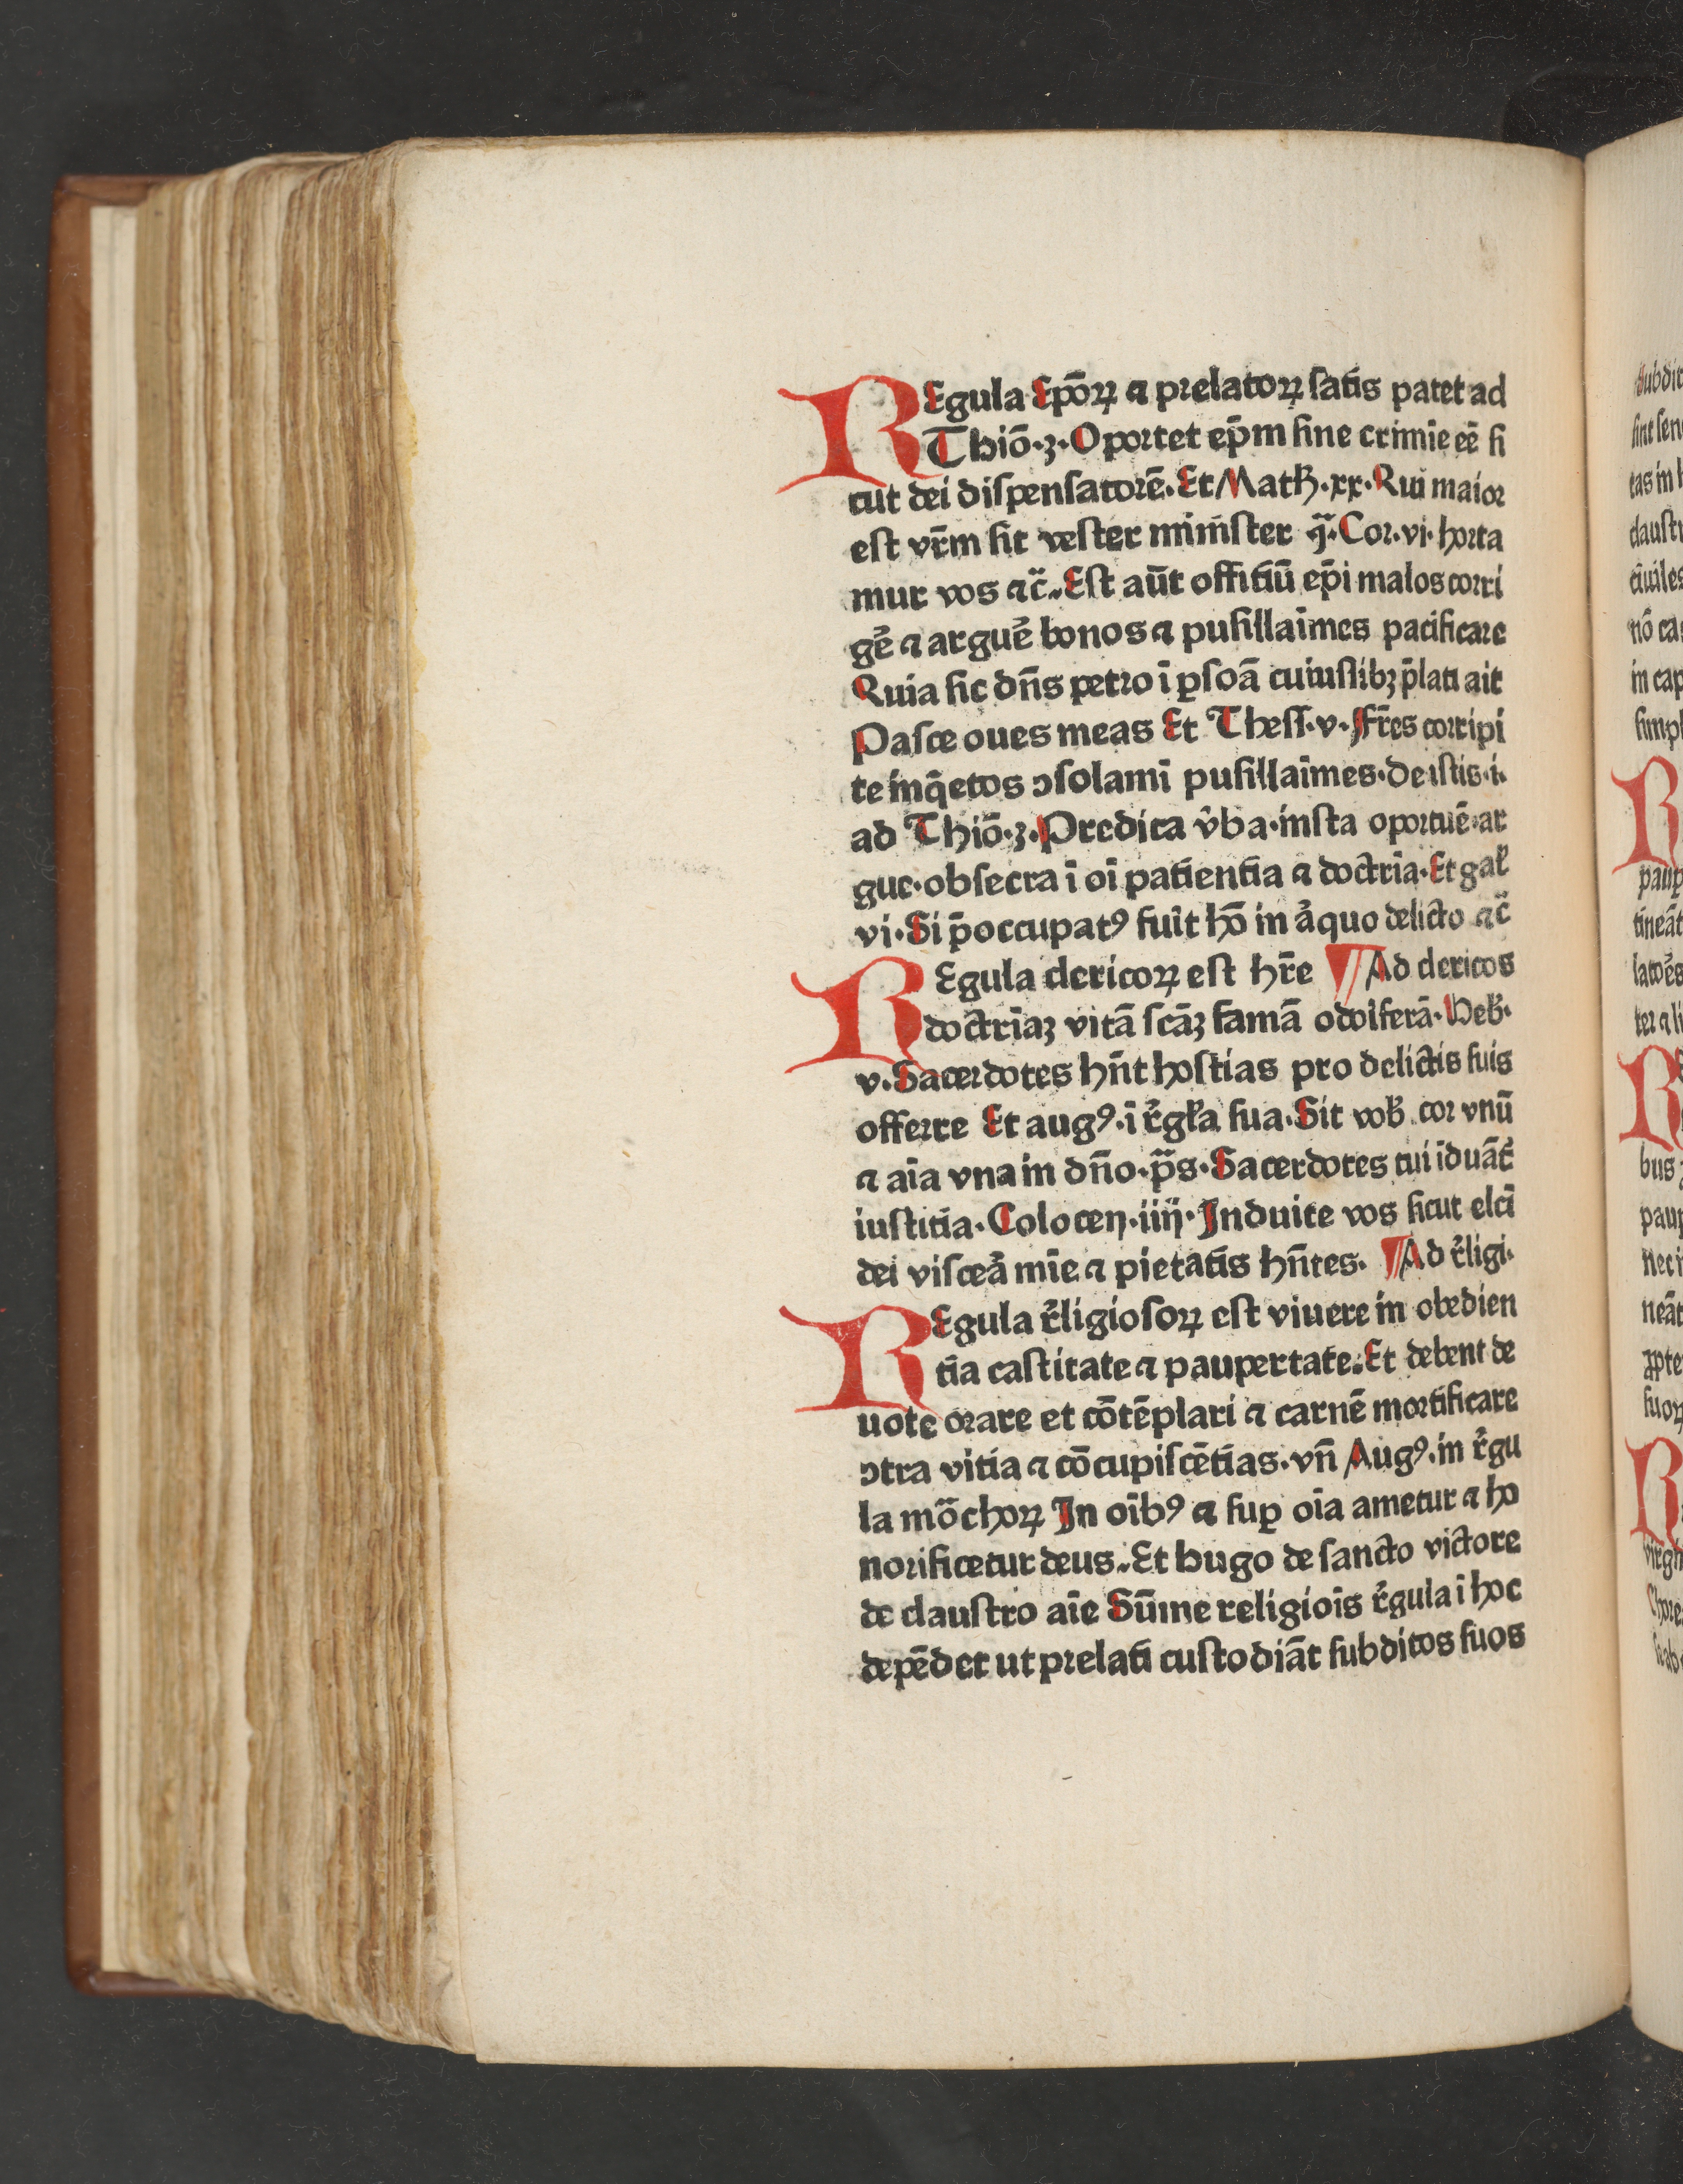 REgula Epōꝝ ⁊ prelatoꝝ ſatis patet ad
Thiō·3·Oportet ep̄m ſine crimīe eē ſi
cut dei diſpenſatorē. Et Matħ·xx·Rui maior
est vr̄m ſit veſter miniſter Cor·vi·horta
mur vos ⁊c̄. Est aūt offitiū ep̄i malos corri
gē ⁊ arguē bonos ⁊ puſillaīmes pacificare
Ruia ſic dn̄s petro ī ꝑſoā cuiuſlibꝫ p̄lati ait
Paſce oues meas Et Theſſ·v·Fr̄es corripi
te inq̄etos ↄſolami puſillaīmes·De iſtis·i·
ad Thiō·3·Predica v̂ba·inſta oportuē·ar
gue·obſecra ī oī patientia ⁊ doctrīa·Et gaꝉ
vi·Si p̄occupatꝰ fuīt hō in aᷓquo delicto ⁊c̄
REgula clericoꝝ est hr̄e ¶Ad clericos
doctrīaꝫ vitā ſcāꝫ famā odoīferā·Heb̄·
v·Sacerdotes hn̄t hoſtias pro delictis ſuis
offerre Et augꝰ·ī r̄gꝉa ſua·Sit vob̄ cor vnū
⁊ aīa vna in dn̄o·p̄s·Sacerdotes tui īduāt̄
iuſtitia·Coloceꝝ·iiij·Induite vos ſicut elcī
dei viſceā mīe ⁊ pietatis hn̄tes. ¶Ad r̄ligi·
REgula r̄ligioſoꝝ est viuere in obedien
tia caſtitate ⁊ paupertate. Et debent de
uote orare et cōtēplari ⁊ carnē mortificare
ↄtra vitia ⁊ cōcupiſcētias·vn̄ Augꝰ·in r̄gu
la mōchoꝝ In oībꝰ ⁊ ſuꝑ oīa ametur ⁊ ho
norificetur deus. Et hugo de ſancto victore
de clauſtro aīe Sūme religiois r̄gula ī hoc
depēdet ut prelati cuſtodiāt ſubditos ſuos